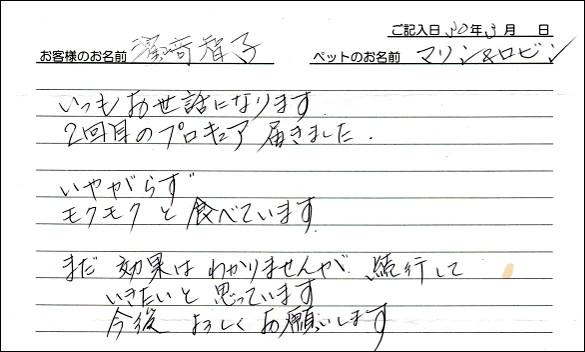 ご記入日 30年3月 日
お客様のお名前 濱﨑智子 ペットのお名前 マリン&ロビン
いつもお世話になります
2回目のプロキュア届きました.
いやがらず
モクモクと食べています
まだ 効果は わかりませんが、続行して
いきたいと思っています
今後 よろしくお願いします